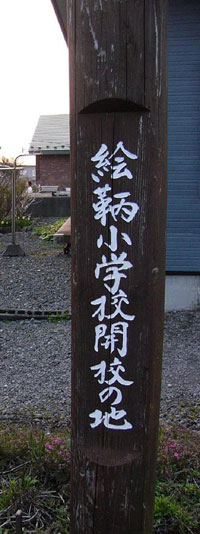 絵鞆小学校開校の地